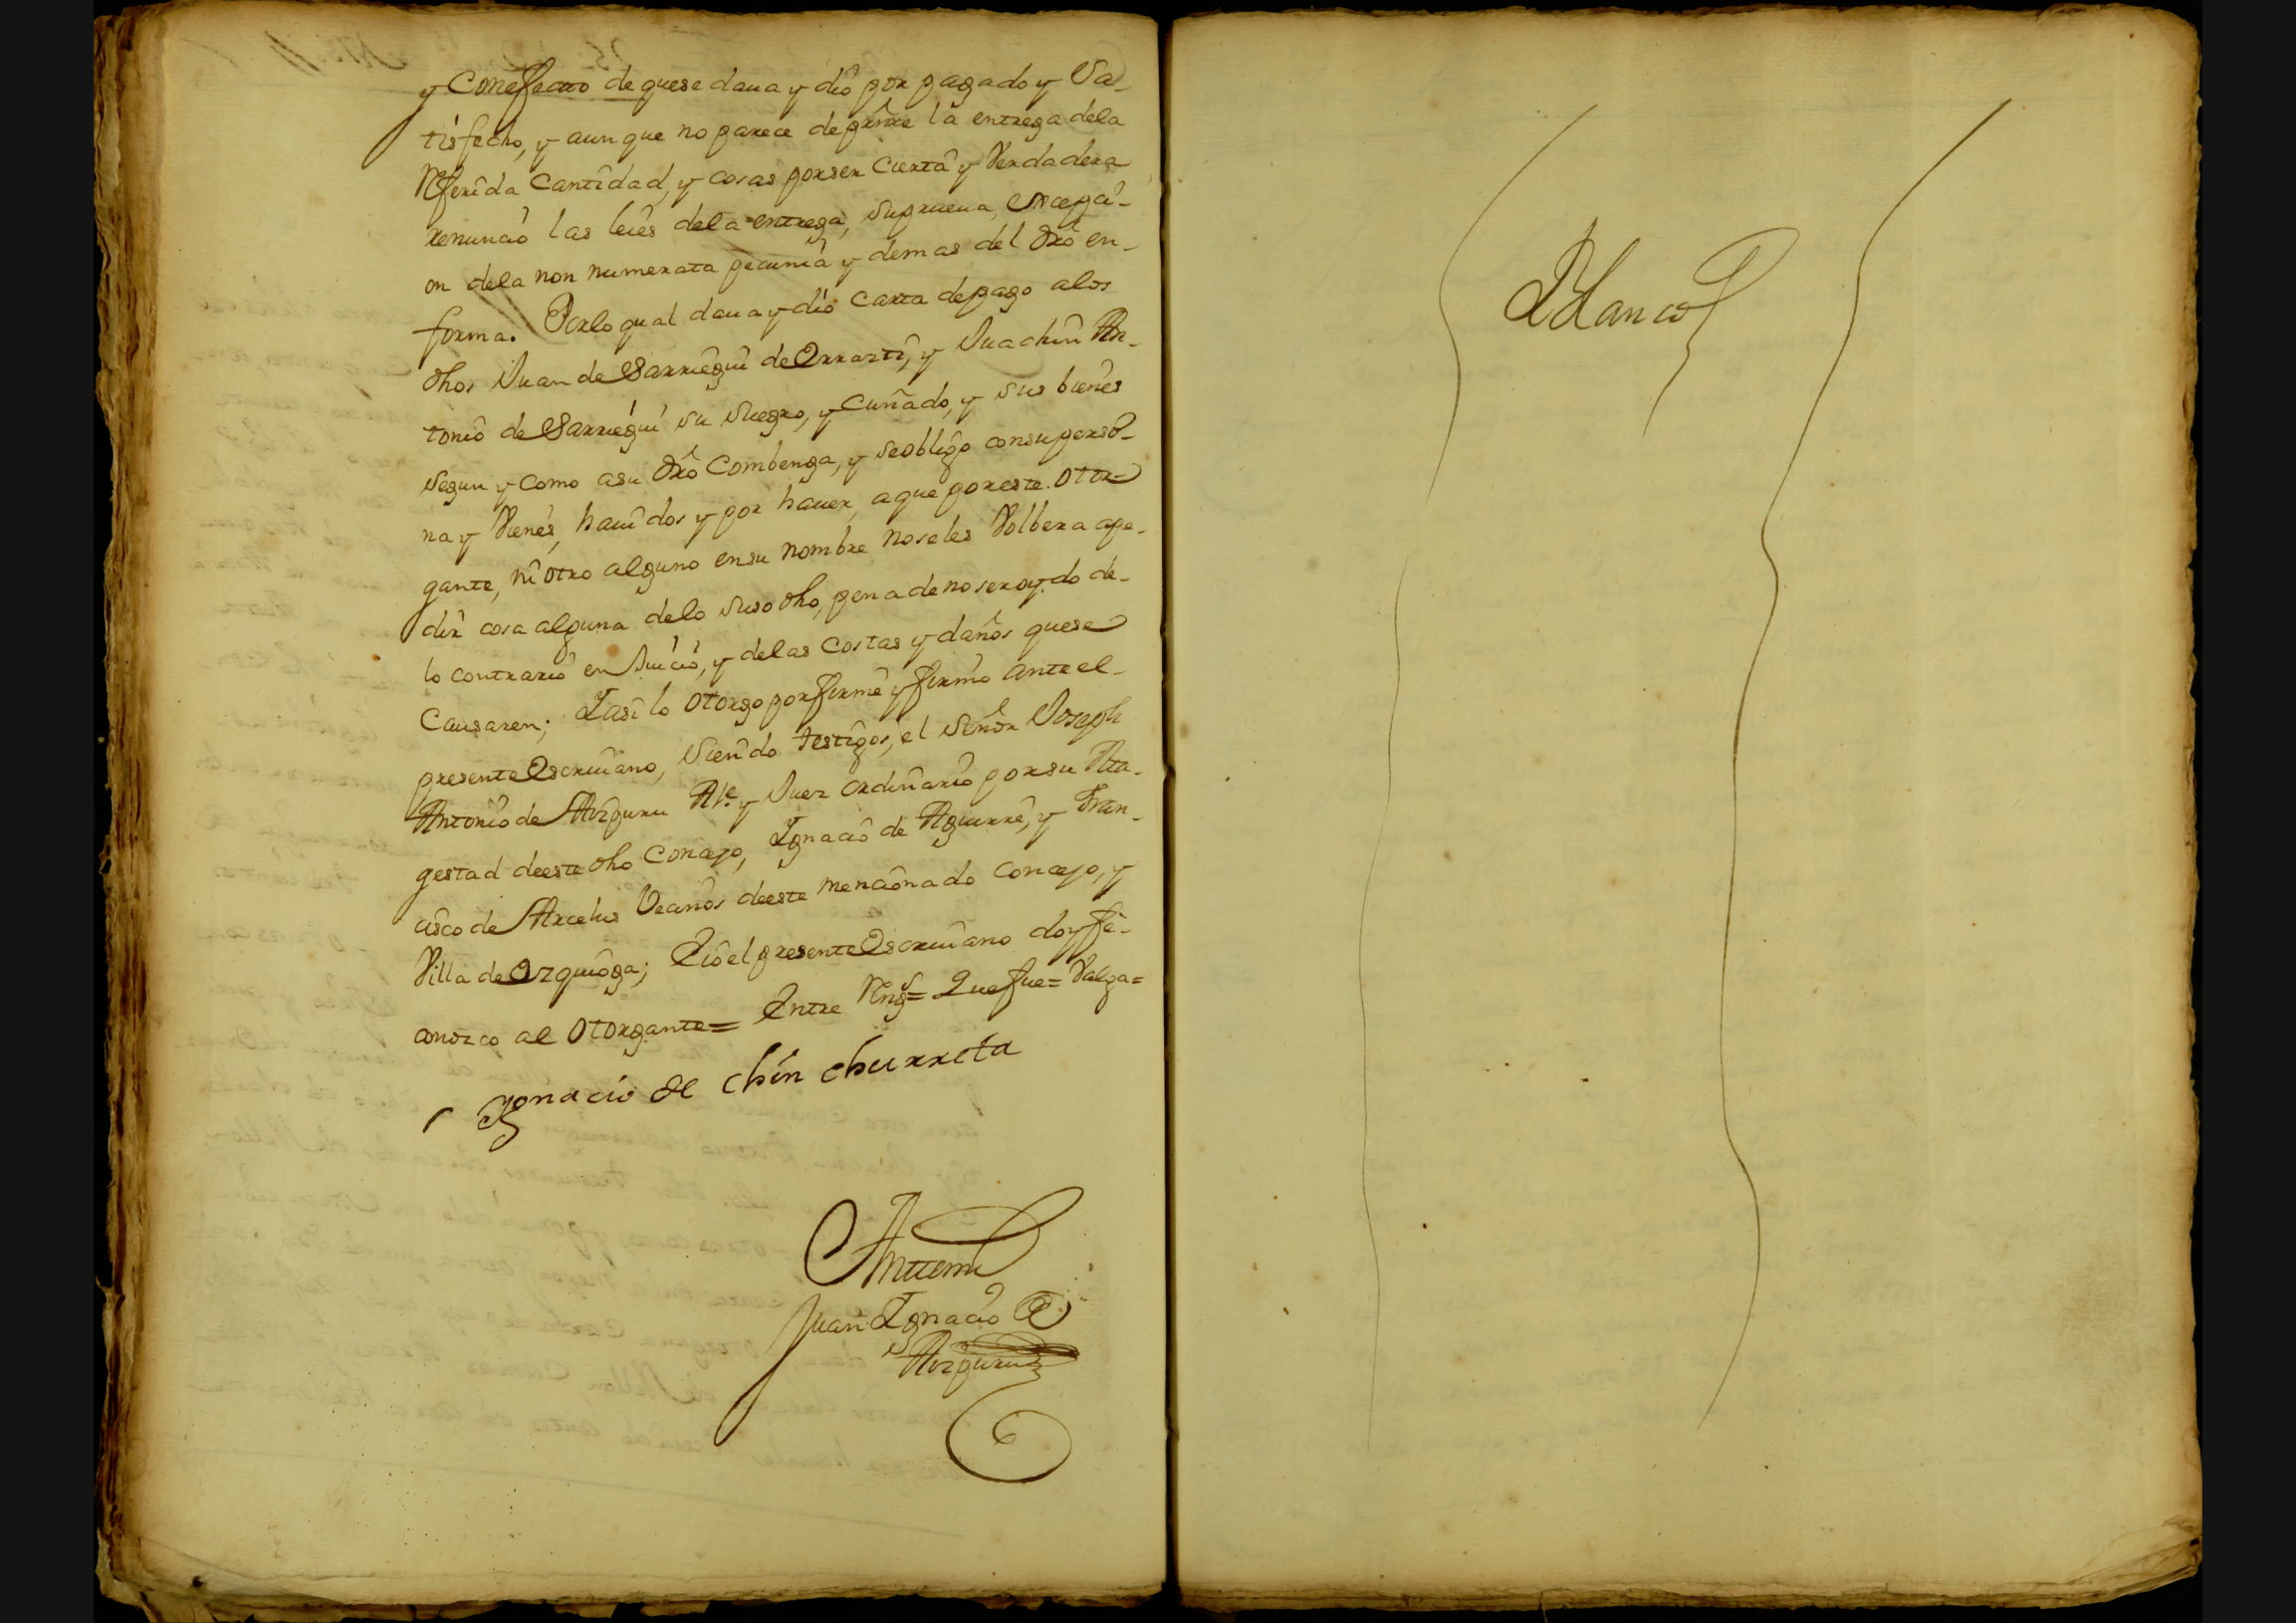 y Conefecto de quese daua y dio por pagado y Sa-
tisfecho, y aun que no parece de presste la entrega dela
Referida Cantidad, y cosas porser Cierta y Verdadera
renuncio las leies dela entrega, suprueua, excepci-
on dela non numerata pecunia y demas del dro en-
forma. Porlo qual daua y dio carta depago alos
dhos Juan de Sarriegui de Orrazti, y Juachin An-
tonio de Sarriegui su suegro, y Cuñado, y sus bienes
segun y como asu dro Combenga, y se obligo consuperso-
na y Vienes, hauidos y por hauer, aque poreste. otor-
gante, ni otro alguno ensu nombre noseles Volbera ape-
dir cosa alguna delo suso dho, pena de no ser oydo de-
lo contrario en Juicio, y delas costas y daños quese
Causaren; Iasi lo otorgo por firme y firmo ante el-
presente Escriuano, siendo testigos, el señor Joseph
Antonio de Aizpuru Alc.e y Juez ordinario por su Ma-
gestad deeste dho Concejo, Ignacio de Aguirre, y Fran-
cisco de Arcelus Vecinos deeste mencionado concejo, y
Villa de Ezquioga; Eio el presente Escriuano doy fe-
conozco al otorgante= Entre Rng.s= Que fue= Valga=
Ignacio de chin churreta
Antemi
Juan Ignacio de
Aizpuru
Blanco